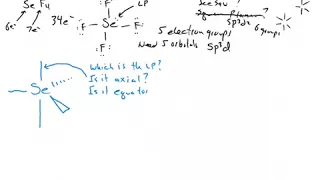 LP
See Saw ?
SeF4
34e⁻
6e⁻ 7e⁻
F F Se F F
sp3d2 6 groups
5 electron groups
Need 5 orbitals sp3d
Which is the LP?
Is it axial?
Se
Is it equator